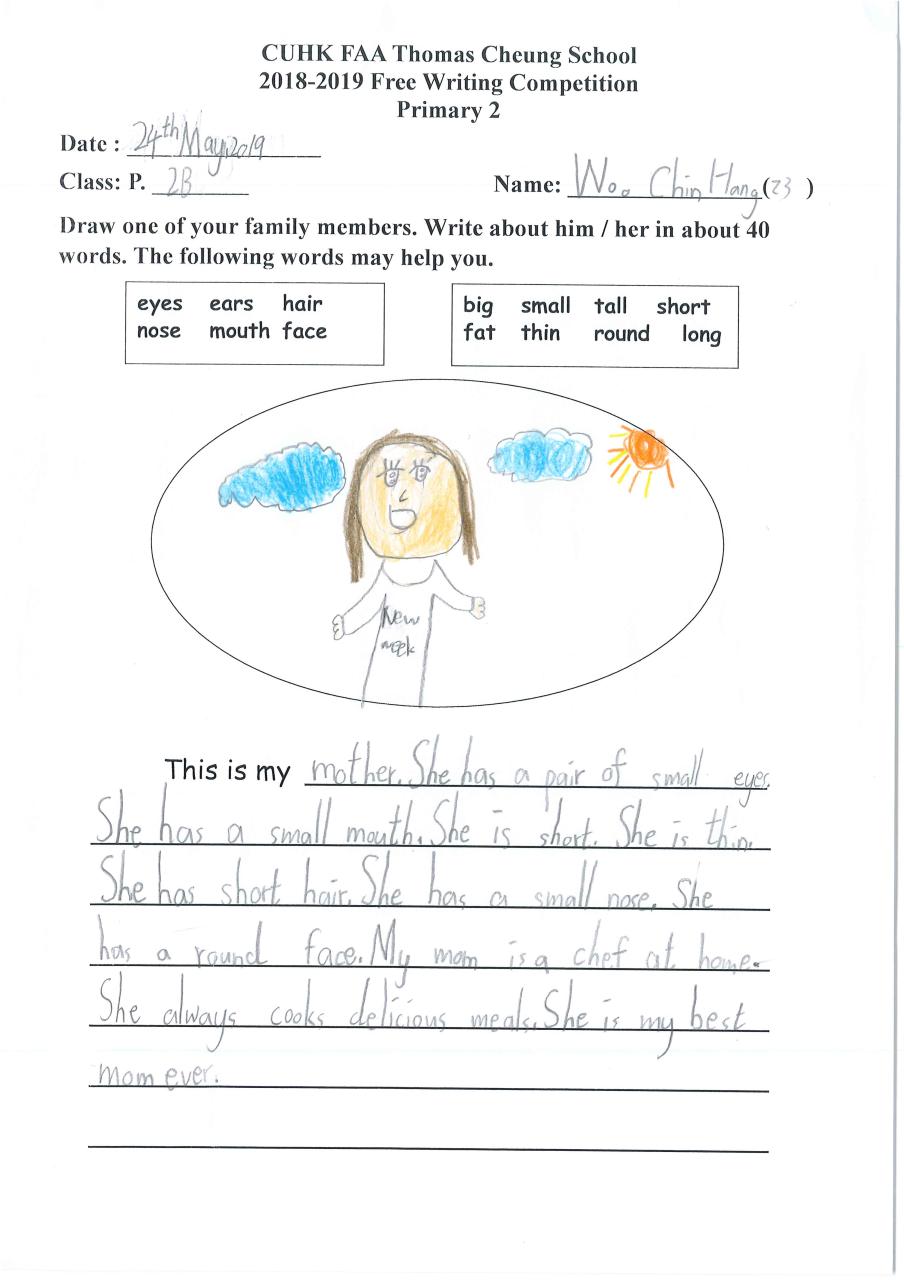 CUHK FAA Thomas Cheung School
2018-2019 Free Writing Competition
Primary 2
Date : 24th May, 2019
Class: P. 2B Name: Woo Chin Hang (23 )
Draw one of your family members. Write about him / her in about 40
words. The following words may help you.
eyes ears hair
nose mouth face
big small tall short
fat thin round long
New
week
This is my mother. She has a pair of small eyes.
She has a small mouth. She is short. She is thin.
She has short hair. She has a small nose. She
has a round face. My mom is a chef at home.
She always cooks delicious meals. She is my best
mom ever.